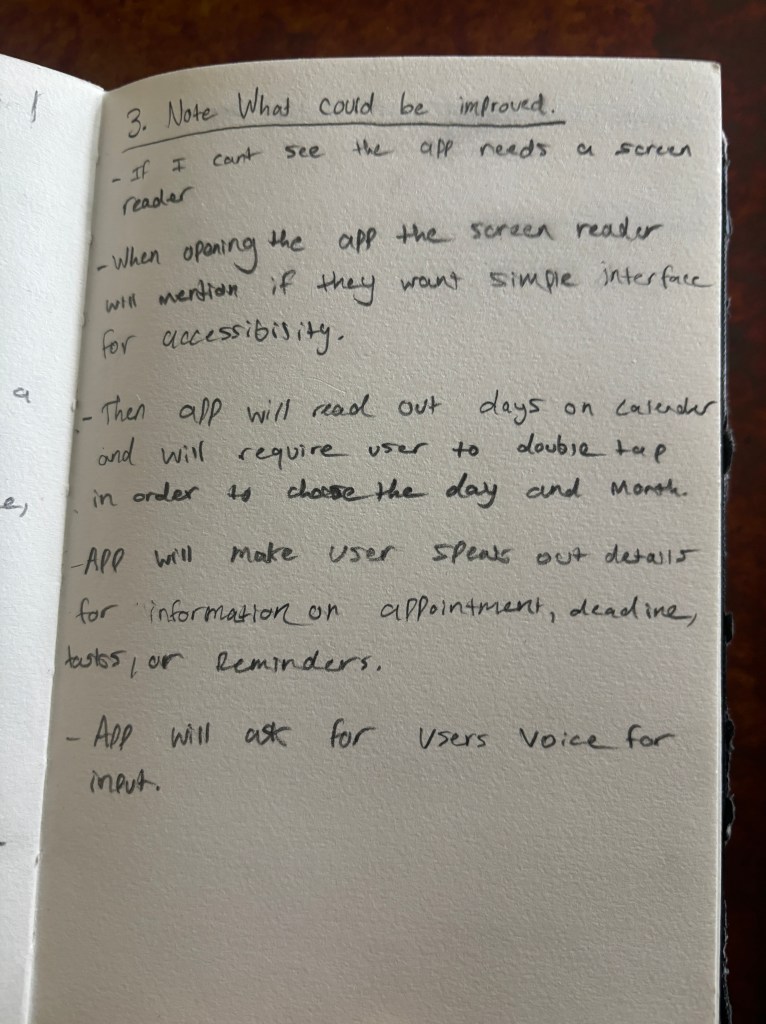 3. Note What could be improved.
- If I cant see the app needs a screen
reader
- When opening the app the screen reader
will mention if they want simple interface
for accessibility.
- Then app will read out days on calender
and will require user to double tap
in order to choose the day and Month.
- App will make user speak out details
for information on appointment, deadline,
tasks, or Reminders.
- App will ask for users voice for
input.
a
e,